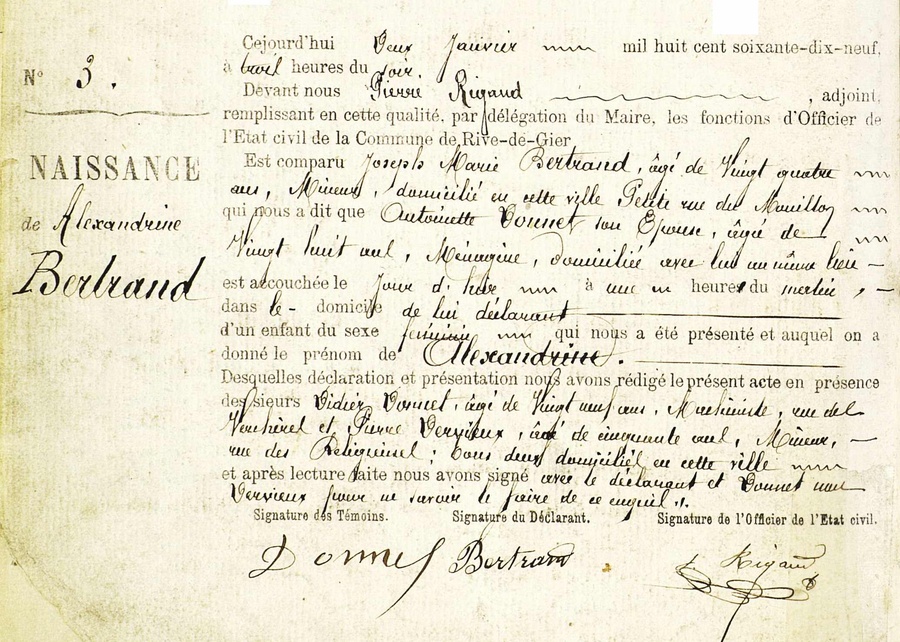 N° 3.
NAISSANCE
de Alexandrine
Bertrand
Cejourd'hui Deux Janvier mil huit cent soixante-dix-neuf,
à trois heures du soir.
Devant nous Pierre Rigaud , adjoint,
remplissant en cette qualité, par délégation du Maire, les fonctions d'Officier de
l'Etat civil de la Commune de Rive-de-Gier
Est comparu Joseph Marie Bertrand, âgé de Vingt quatre
ans, Mineur, domicilié en cette ville Petite rue du Mouillon
qui nous a dit que Antoinette Donnet son Epouse, âgée de
Vingt huit ans, Ménagère, domiciliée avec lui au même lieu –
est accouchée le Jour d'hier à une heures du matin, –
dans le - domicile de lui déclarant
d'un enfant du sexe féminin qui nous a été présenté et auquel on a
donné le prénom de Alexandrine.
Desquelles déclaration et présentation nous avons rédigé le présent acte en présence
des sieurs Didier Donnet, âgé de Vingt neuf ans, Machiniste, rue des
Verchères et Pierre Dervieux, âgé de cinquante ans, Mineur, –
rue des Religieuses; tous deux domiciliés en cette ville
et après lecture faite nous avons signé avec le déclarant et Donnet non
Dervieux pour ne savoir le faire de ce enquis.
Signature des Témoins. Signature du Déclarant. Signature de l'Officier de l'Etat civil.
Donnet Bertrand Rigaud